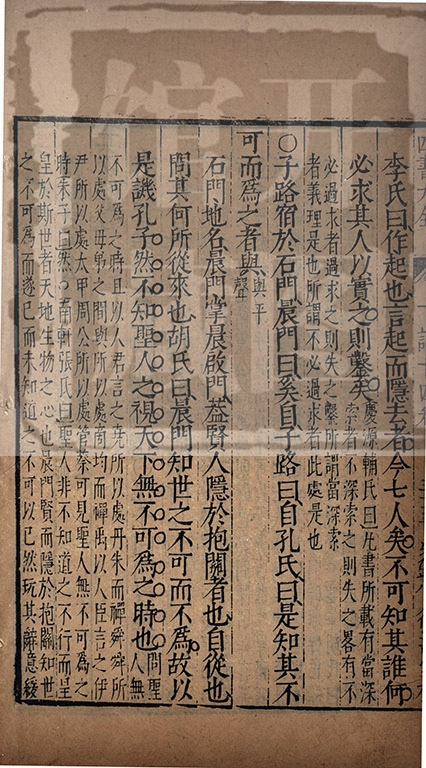 李氏曰作起也言起而隱去者今七人矣不可知其誰何
必求其人以實之則鑿矣慶源輔氏曰凡書所載有當深
索者不深索之則失之畧有不
必過求者過求之則失之鑿所謂當深索
者義理是也所謂不必過求者此處是也
○子路宿於石門晨門曰奚自子路曰自孔氏曰是知其不
可而爲之者與與平
聲
石門地名晨門掌晨啟門蓋賢人隱於抱關者也自從也
問其何所從來也胡氏曰晨門知世之不可而不爲故以
是譏孔子然不知聖人之視天下無不可爲之時也問聖
人無
不可爲之時且以人君言之堯所以處丹朱而禪舜舜所
以處父母弟之間與所以處商均而禪禹以人臣言之伊
尹所以處太甲周公所以處管蔡可見聖人無不可爲之
時朱子曰然○南軒張氏曰聖人非不知道之不行而皇
皇於斯世者天地生物之心也晨門賢而隱於抱關知世
之不可爲而遂已而未知道之不可以已然玩其辭意緩